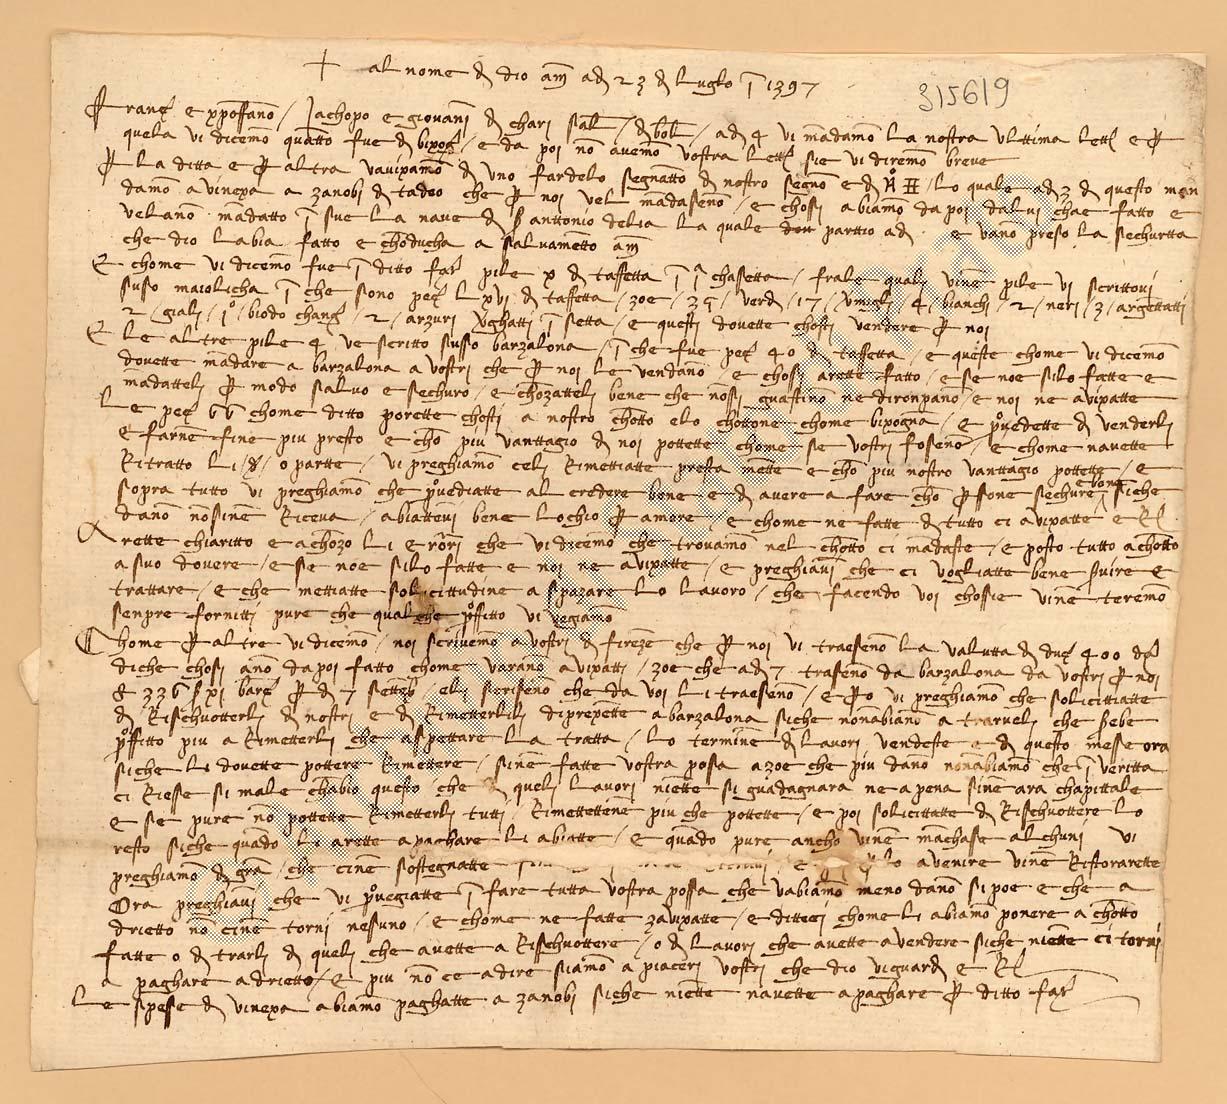 + al nome di dio am ad 23 di luglo 1397
315619
Franc e chompa / Jachopo e giovani di chari sal / di bol / ad 4 vi madamo la nostra ulttima lett e p
quela vi dicemo quatto fue di bixog / e da poi no avemo vostra lett sie vi diremo breve
p la ditta e p altra vavixamo di uno fardelo segnatto di nostro segno e di / lo quale ad 3 di questo man
damo a vinexa a zanobi di tadeo che p noi vel madaseno / e chossi abiamo da poi dalui chae fatto e
velano madatto sue la nave di s anttonio delia la quale dou parttio ad e vano preso la sechurtta
che dio labia fatto e choducha a salvametto am
E chome vi dicemo fue ditto far pile x di taffetta chassetta / frale quali vine pile vi scrittovi
suso maiolicha che sono pec lxvi di taffetta / zoe / 29 / verdi / 17 / vmigli 4 bianchi / 2 / neri / 3 / argettatti
2 / giali / 1 / biodo chang / 2 / arzuri vghatti setta / e questi dovette chosti vendere p noi
E le altre pile 4 ve scritto susso barzalona / che fue pec 40 di taffetta / e queste chome vi dicemo
dovette madare a barzalona a vostri che p noi le vendano / e chossi arette fatto / e se noe silo fatte e
madatteli p modo salvo e sechuro / e chozatteli bene che nosi guastino ne dironpano / e noi ne avixatte
Le pec 66 chome ditto porette chosti a nostro chotto elo chottone chome bixogna / e pvedette di venderli
e farne fine piu presto e cho piu vanttagio di noi pottette chome se vostri foseno / e chome navette
Ritratto li / d / o partte / vi preghiamo celi Rimettiatte presta mette e cho piu nostro vanttagio pottette / e
sopra tutto vi preghiamo che pvediatte al credere bene e di avere a fare cho psone sechure e bone siche
dano nosine Riceva / abiattevi bene lochio p amore / e chome ne fatte di tutto ci avixatte e Rl
Arette chiaritto e achozo li erori che vi dicemo che trovamo nel chotto ci madaste / e posto tutto a chotto
a suo dovere / e se noe silo fatte e noi ne avixatte / e preghiavi che ci vogliatte bene svire e
trattare / e che mettiatte solicittudine a spazare lo lavoro / che facendo voi chossie vine teremo
senpre fornitti pure che qualche pffitto vi vegiamo
Chome p altre vi dicemo / noi scrivemo a vostri di fireze che p noi vi traeseno la valutta di duc 400 doro
diche chosi ano da poi fatto chome varano avixatti / zoe che ad 7 traseno da barzalona da vostri p noi
336 s xi barc p di 7 settebr / eli scriseno che da voi li traeseno / e po vi preghiamo che solicittiatte
di Rischuotterli di nostri e di Rimetterlili di prexette a barzalona siche nonabiano a trarveli che sebe
pffitto piu a Rimetterli che aspettare la tratta / lo termine di lavori vendeste e di questo messe ora
siche li dovette pottere Rimettere / sine fatte vostra posa azoe che piu dano nonabiamo che veritta
ci Riesse si male chabio questo che di queli lavori niette si guadagnara ne a pena sine ara chapittale
E se pure no pottette Rimetterli tutti / Rimettettene piu che pottette / e poi solicittatte di Rischuottere lo
resto siche quado li arette a paghare li abiatte / e quado pure ancho vine machase alchuni vi
preghiamo di gra / che cine sostegnatte e lo avenire vine Ristorarette
Ora preghiavi che vi pvegiatte fare tutta vostra possa che vabiamo meno dano si poe e che a
drietto no cine torni nessuno / e chome ne fatte zavixatte / e ditteci chome li abiamo ponere a chotto
fatte o di trarli di queli che avette a Rischuottere / o di lavori che avette a vendere siche niette ci torni
a paghare adrietto / e piu no ce a dire siamo a piaceri vostri che dio viguardi e Rl
Le spese di vinexa abiamo paghatte a zanobi siche niette navette a paghare p ditto far